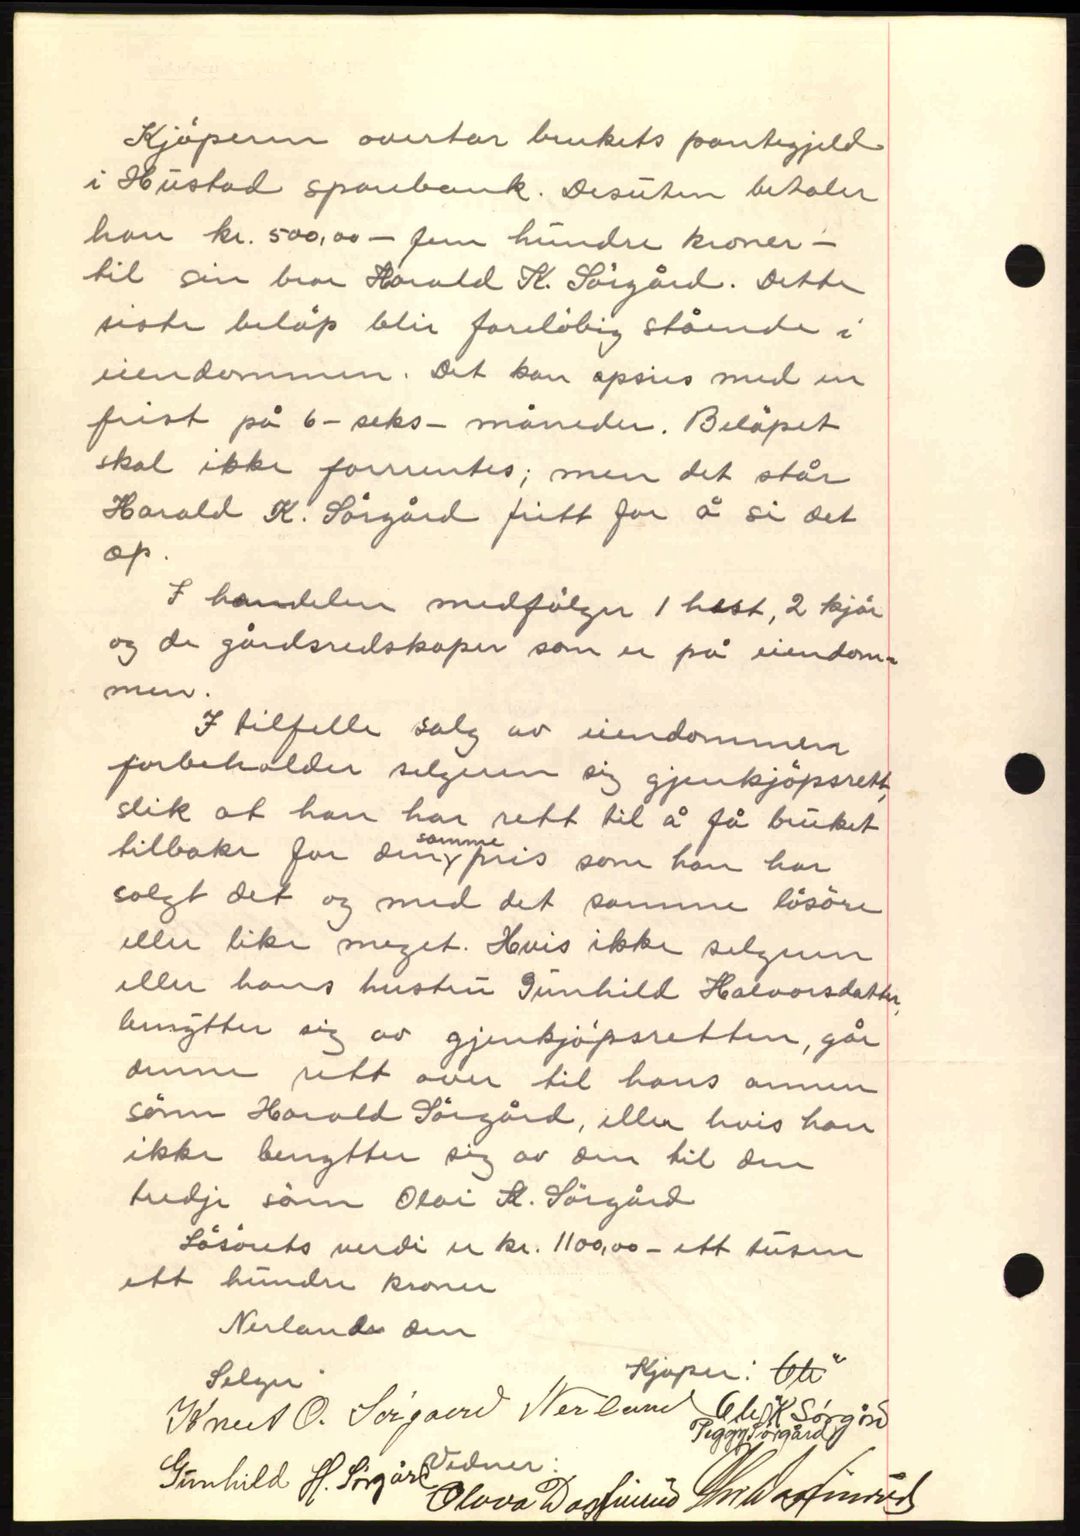 Kjöperen overtar brukets pantegjeld
i Hustad sparebank. Desuten betaler
han kr. 500,00 - fem hundre kroner -
til sin bror Harald K. Sörgård. Dette
siste belöp blir foreløbig stående i
eiendommen. Det kan opsies med en
frist på 6 - seks - måneder. Belöpet
skal ikke forrentes; men det står
Harald K. Sörgård fritt for å si det
op.
I handelen medfölger 1 hest, 2 kjör
og de gårdsredskaper som er på eiendom-
men.
I tilfelle salg av eiendommen
forbeholder selgeren sig gjenkjöpsrett,
slik at han har rett til å få bruket
tilbake for den samme pris som han har
solgt det og med det samme lösöre
eller like meget. Hvis ikke selgeren
eller hans hustru Gunhild Halvorsdatter,
benytter sig av gjenkjöpsretten, går
denne rett over til hans annen
sönn Harald Sörgård, eller hvis han
ikke benytter sig av den til den
tredje sönn Olai K. Sörgård
Lösörets verdi er kr. 1100,00 - ett tusen
ett hundre kroner
Nerland den
Selger Kjøper: Ole
Knut O. Sørgaard Nerland Ole K Sørgård
Peggy Sørgård
Gunhild H. Sørgård Vidner:
Olava Dasfinrud